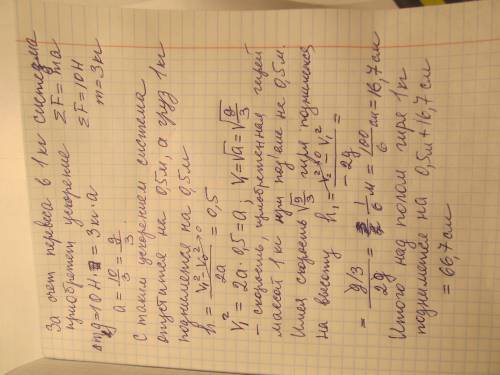 За счет перевеса в 1 кг система
приобретет ускорение ΣF = ma
ΣF = 10Н
Δmg = 10Н = 3кг · a m = 3кг
a = 10/3 = g/3
С таким ускорением система
опустится на 0,5м, а груз 1кг
поднимется на 0,5м
h = (V₁² - V₀²)/2a = 0,5 V₀ = 0
V₁² = 2a · 0,5 = a; V₁ = √a = √(g/3)
- скорость, приобретенная гирей
массой 1 кг при под'еме на 0,5м.
Имея скорость √(g/3) гиря поднимется
на высоту h₁ = (V₂² - V₁²)/(-2g) =
= (g/3)/2g = 1/6 м = 100/6 см = 16,7см
Итого над полом гиря 1кг
поднимется на 0,5м + 16,7см
= 66,7см